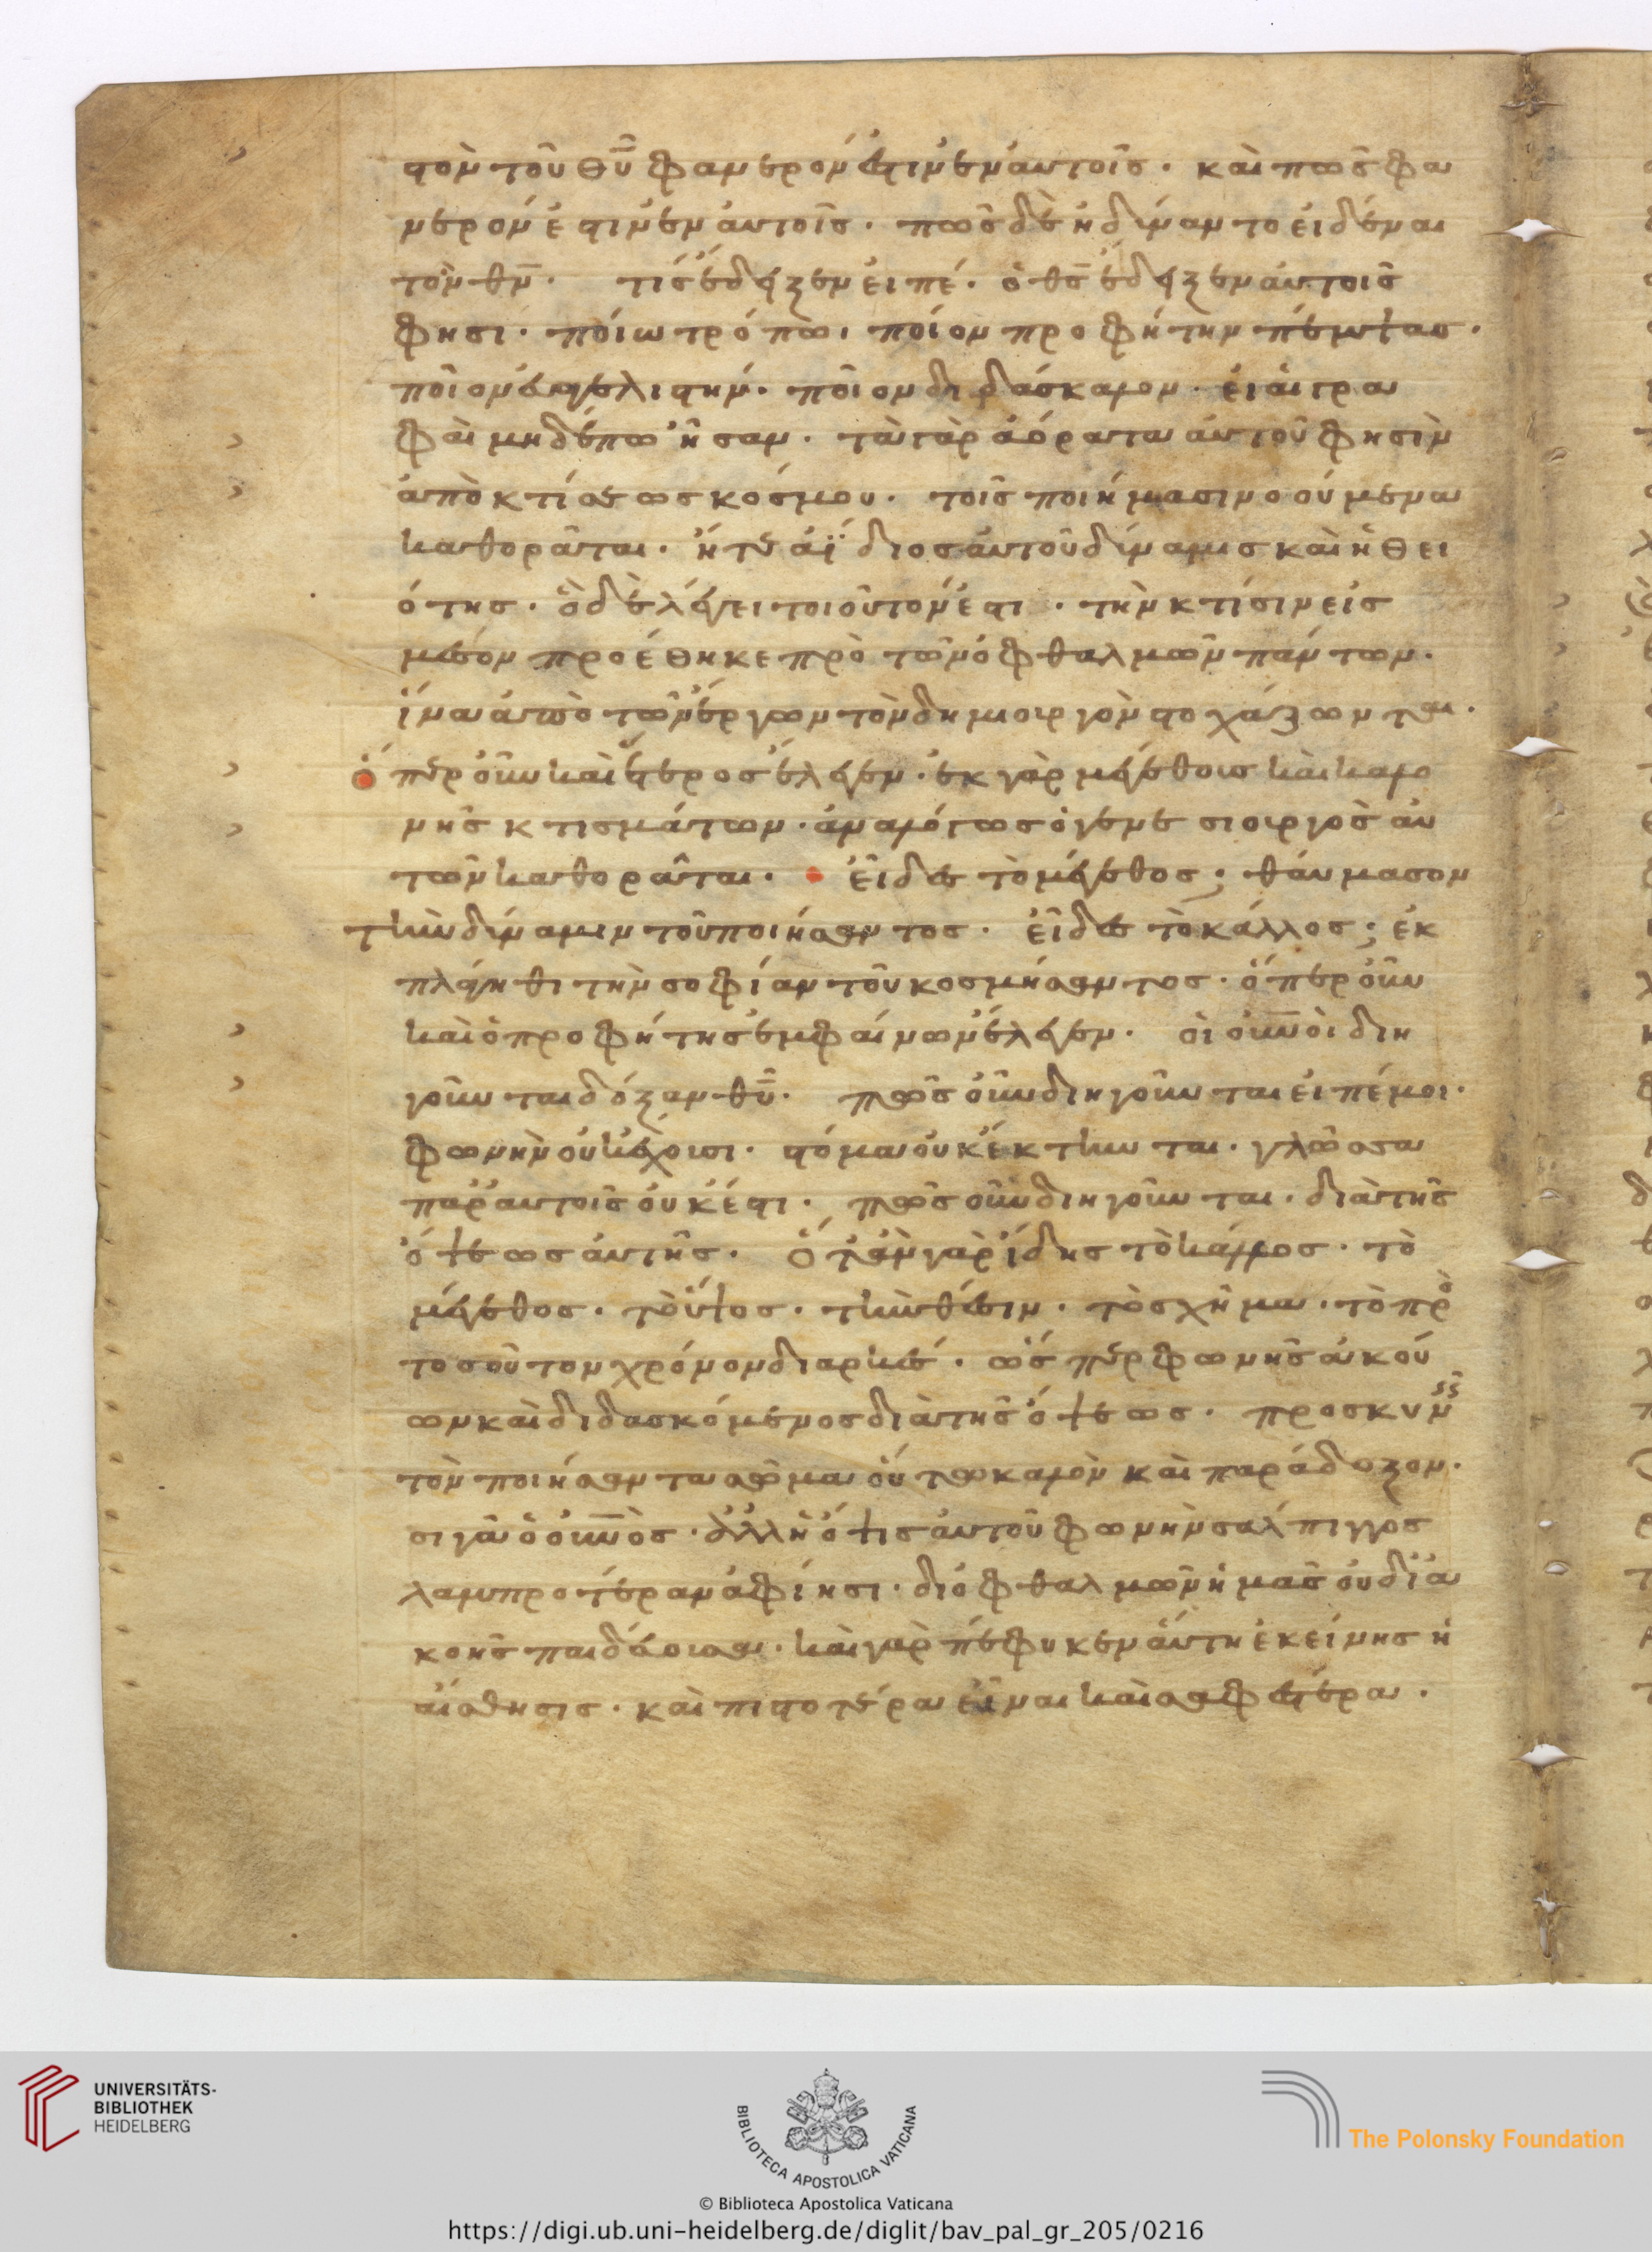 στὸν τοῦ θῦ φανερόν ἐστιν ἐν αὐτοῖς. καὶ πῶς φα
νερόν ἐστιν ἐν αὐτοῖς. πῶς δὲ ἠδύναντο εἰδέναι
τὸν θν. τίς ἔδειξεν εἰπέ. ὁ θς ἔδειξεν αὐτοῖς
φησι. ποίω τρόπω. ποῖον προφήτην πέμψας.
ποῖον εὐαγγελιστήν. ποῖον διδάσκαλον. εἰ αἱ γρα
φαὶ μηδέπω ἦσαν. τὰ γὰρ ἀόρατα αὐτοῦ φησὶν
ἀπὸ κτίσεως κόσμου. τοῖς ποιήμασι νοούμενα
καθορᾶται. ἥ τε ἀΐδιος αὐτοῦ δύναμις καὶ ἡ θει
ότης. ὃ δὲ λέγει τοιοῦτόν ἐστι. τὴν κτίσιν εἰς
μέσον προέθηκε πρὸ τῶν ὀφθαλμῶν πάντων.
ἵνα ἀπὸ τῶν ἔργων τὸν δημιουργὸν στοχάζωνται.
ὅπερ οὖν καὶ ἕτερος ἔλεγεν. ἐκ γὰρ μεγέθους καὶ καλο
νῆς κτισμάτων. ἀναλόγως ὁ γενεσιουργὸς αὐ
τῶν καθορᾶται. εἶδες τὸ μέγεθος; θαύμασον
τὴν δύναμιν τοῦ ποιήσαντος. εἶδες τὸ κάλλος; ἐκ
πλάγηθι τὴν σοφίαν τοῦ κοσμήσαντος. ὅπερ οὖν
καὶ ὁ προφήτης ἐμφαίνων ἔλεγεν. οἱ οὐνοὶ διη
γοῦνται δόξαν θῦ. πῶς οὖν διηγοῦνται εἰπέ μοι.
φωνὴν οὐκ ἔχουσι. στόμα οὐ κέκτηνται. γλῶσσα
παρ' αὐτοῖς οὐκ ἔστι. πῶς οὖν διηγοῦνται. διὰ τῆς
ὄψεως αὐτῆς. ὅταν γὰρ ἴδης τὸ κάλλος. τὸ
μέγεθος. τὸ ὕψος. τὴν θέσιν. τὸ σχῆμα. τὸ πρὸ
τοσοῦτον χρόνον διαρκές. ὥσπερ φωνῆς ἀκού
ων καὶ διδασκόμενος διὰ τῆς ὄψεως. προσκυν
τὸν ποιήσαντα σῶμα οὕτω καλὸν καὶ παράδοξον.
σιγᾶ ὁ οὐνὸς. ἀλλ' ἡ ὄψις αὐτοῦ φωνὴν σάλπιγγος
λαμπροτέραν ἀφίησι. δι' ὀφθαλμῶν ἡμᾶς οὐ δι' ἀ
κοῆς παιδεύουσα. καὶ γὰρ πέφυκεν αὕτη ἐκείνης ἡ
αἴσθησις. καὶ πιστοτέρα εἶναι καὶ σαφεστέρα.
UNIVERSITÄTS-
BIBLIOTHEK
HEIDELBERG
BIBLIOTECA APOSTOLICA VATICANA
The Polonsky Foundation
© Biblioteca Apostolica Vaticana
https://digi.ub.uni-heidelberg.de/diglit/bav_pal_gr_205/0216